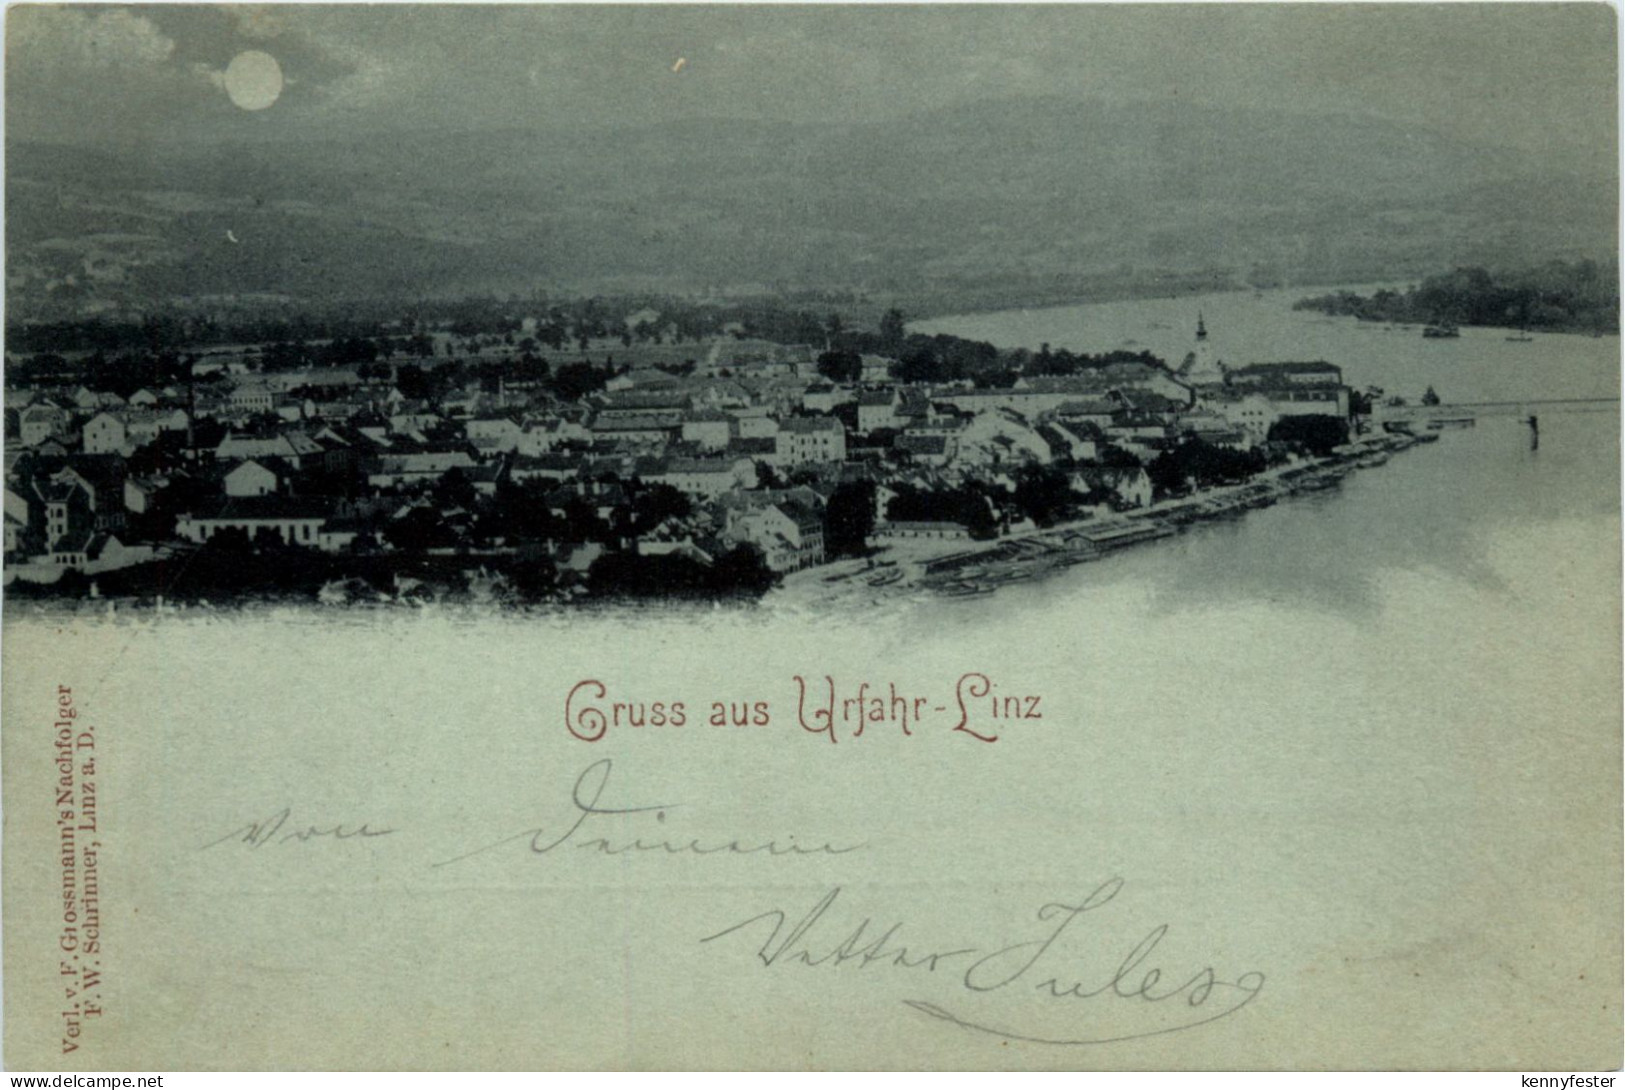 Gruss aus Urfahr-Linz
von Deinem
Vetter Jules
Verl. v. F. Grossmann's Nachfolger
F. W. Schrinner, Linz a. D.
www.delcampe.net
kennyfester